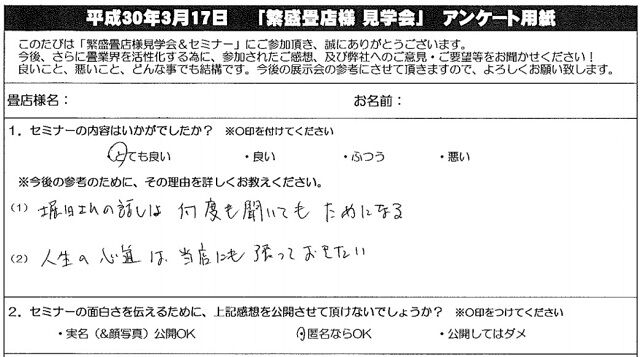 平成30年3月17日 「繁盛畳店様 見学会」 アンケート用紙
このたびは「繁盛畳店様見学会&セミナー」にご参加頂き、誠にありがとうございます。
今後、さらに畳業界を活性化する為に、参加されたご感想、及び弊社へのご意見・ご要望等をお聞かせください!
良いこと、悪いこと、どんな事でも結構です。今後の展示会の参考にさせて頂きますので、よろしくお願い致します。
畳店様名: お名前:
1.セミナーの内容はいかがでしたか? ※〇印を付けてください
・とても良い ・良い ・ふつう ・悪い
※今後の参考のために、その理由を詳しくお教えください。
(1) 堀田さんの話しは 何度も聞いても ためになる
(2) 人生の心道は、当店にも 張っておきたい
2.セミナーの面白さを伝えるために、上記感想を公開させて頂けないでしょうか? ※〇印をつけてください
・実名(&顔写真)公開OK ・匿名ならOK ・公開してはダメ